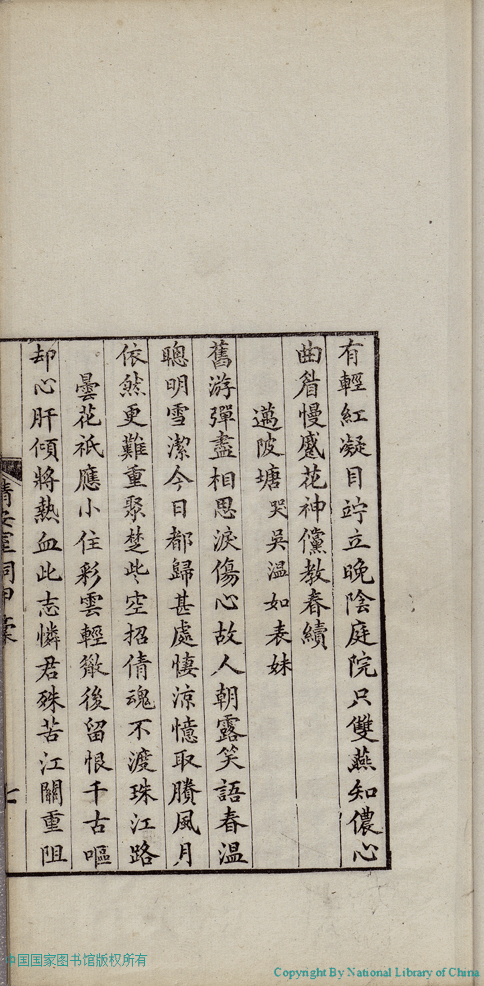 有輕紅凝目竚立晚陰庭院只雙燕知儂心
曲眉慢蹙花神儻教春續
邁陂塘 哭吳温如表妹
舊游彈盡相思淚傷心故人朝露笑語春温
聰明雪潔今日都歸甚處悽涼憶取賸風月
依然更難重聚楚些空招倩魂不渡珠江路
曇花祇應小住彩雲輕散後留恨千古嘔
却心肝傾將熱血此志憐君殊苦江關重阻
室詞甲稾
七
中国国家图书馆版权所有
Copyright By National Library of China